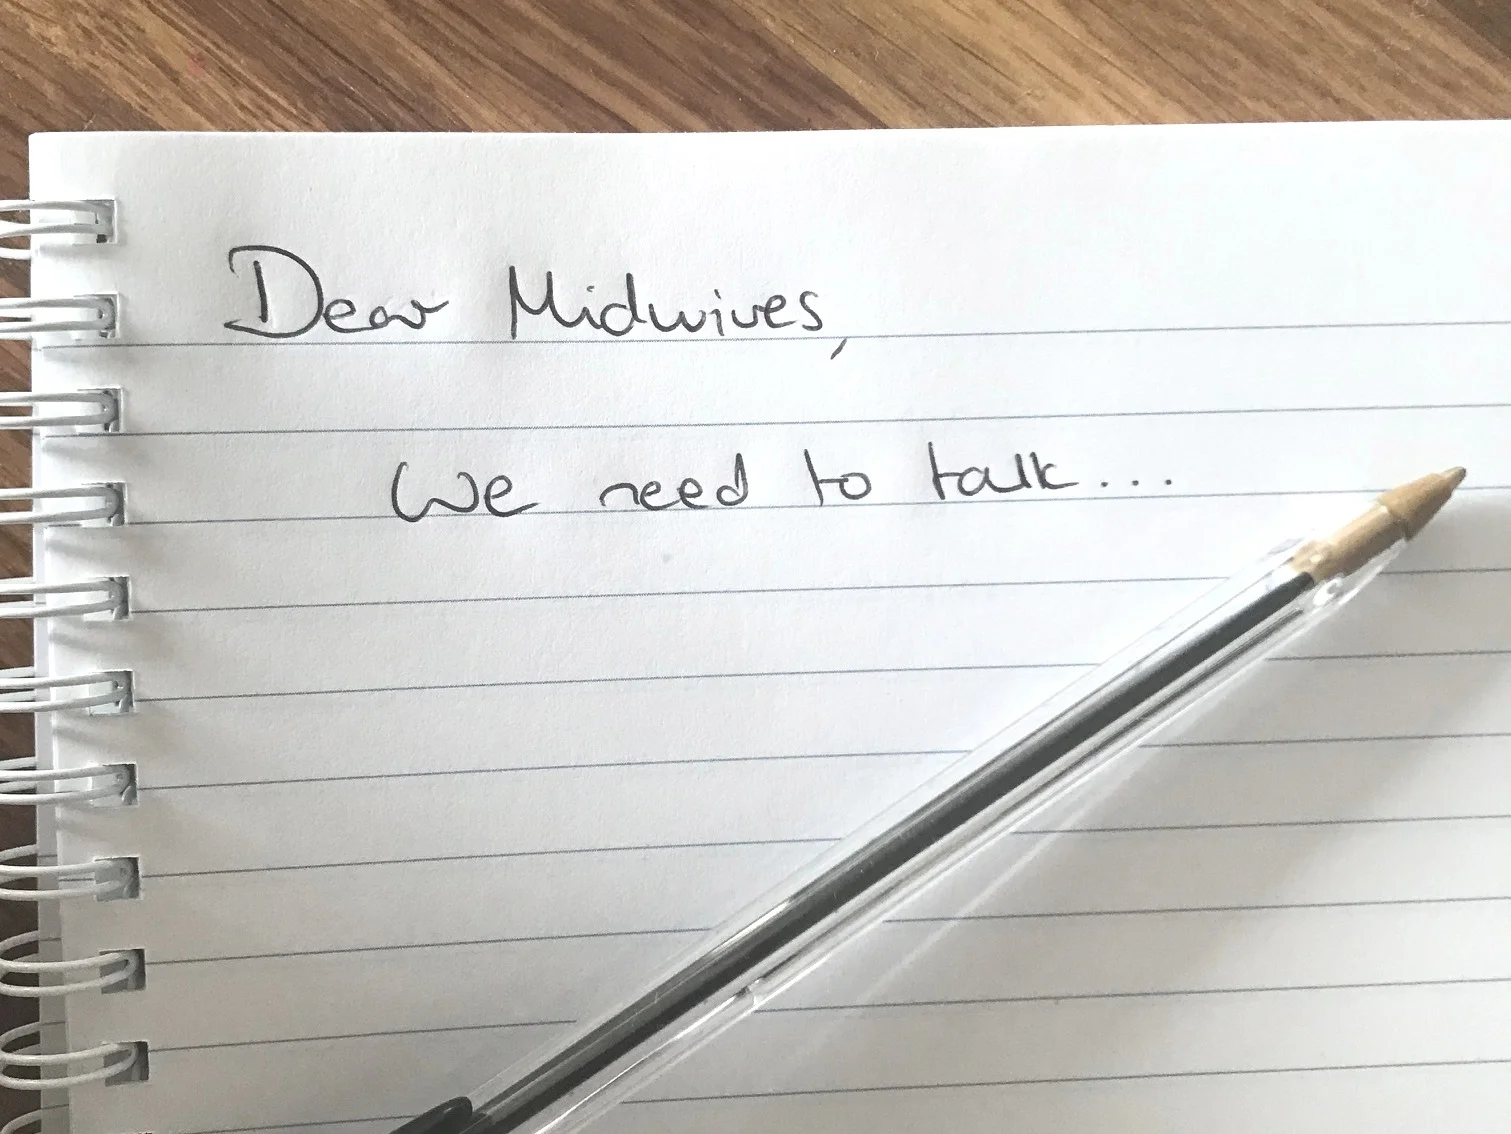 Dear Midwives,
We need to talk...